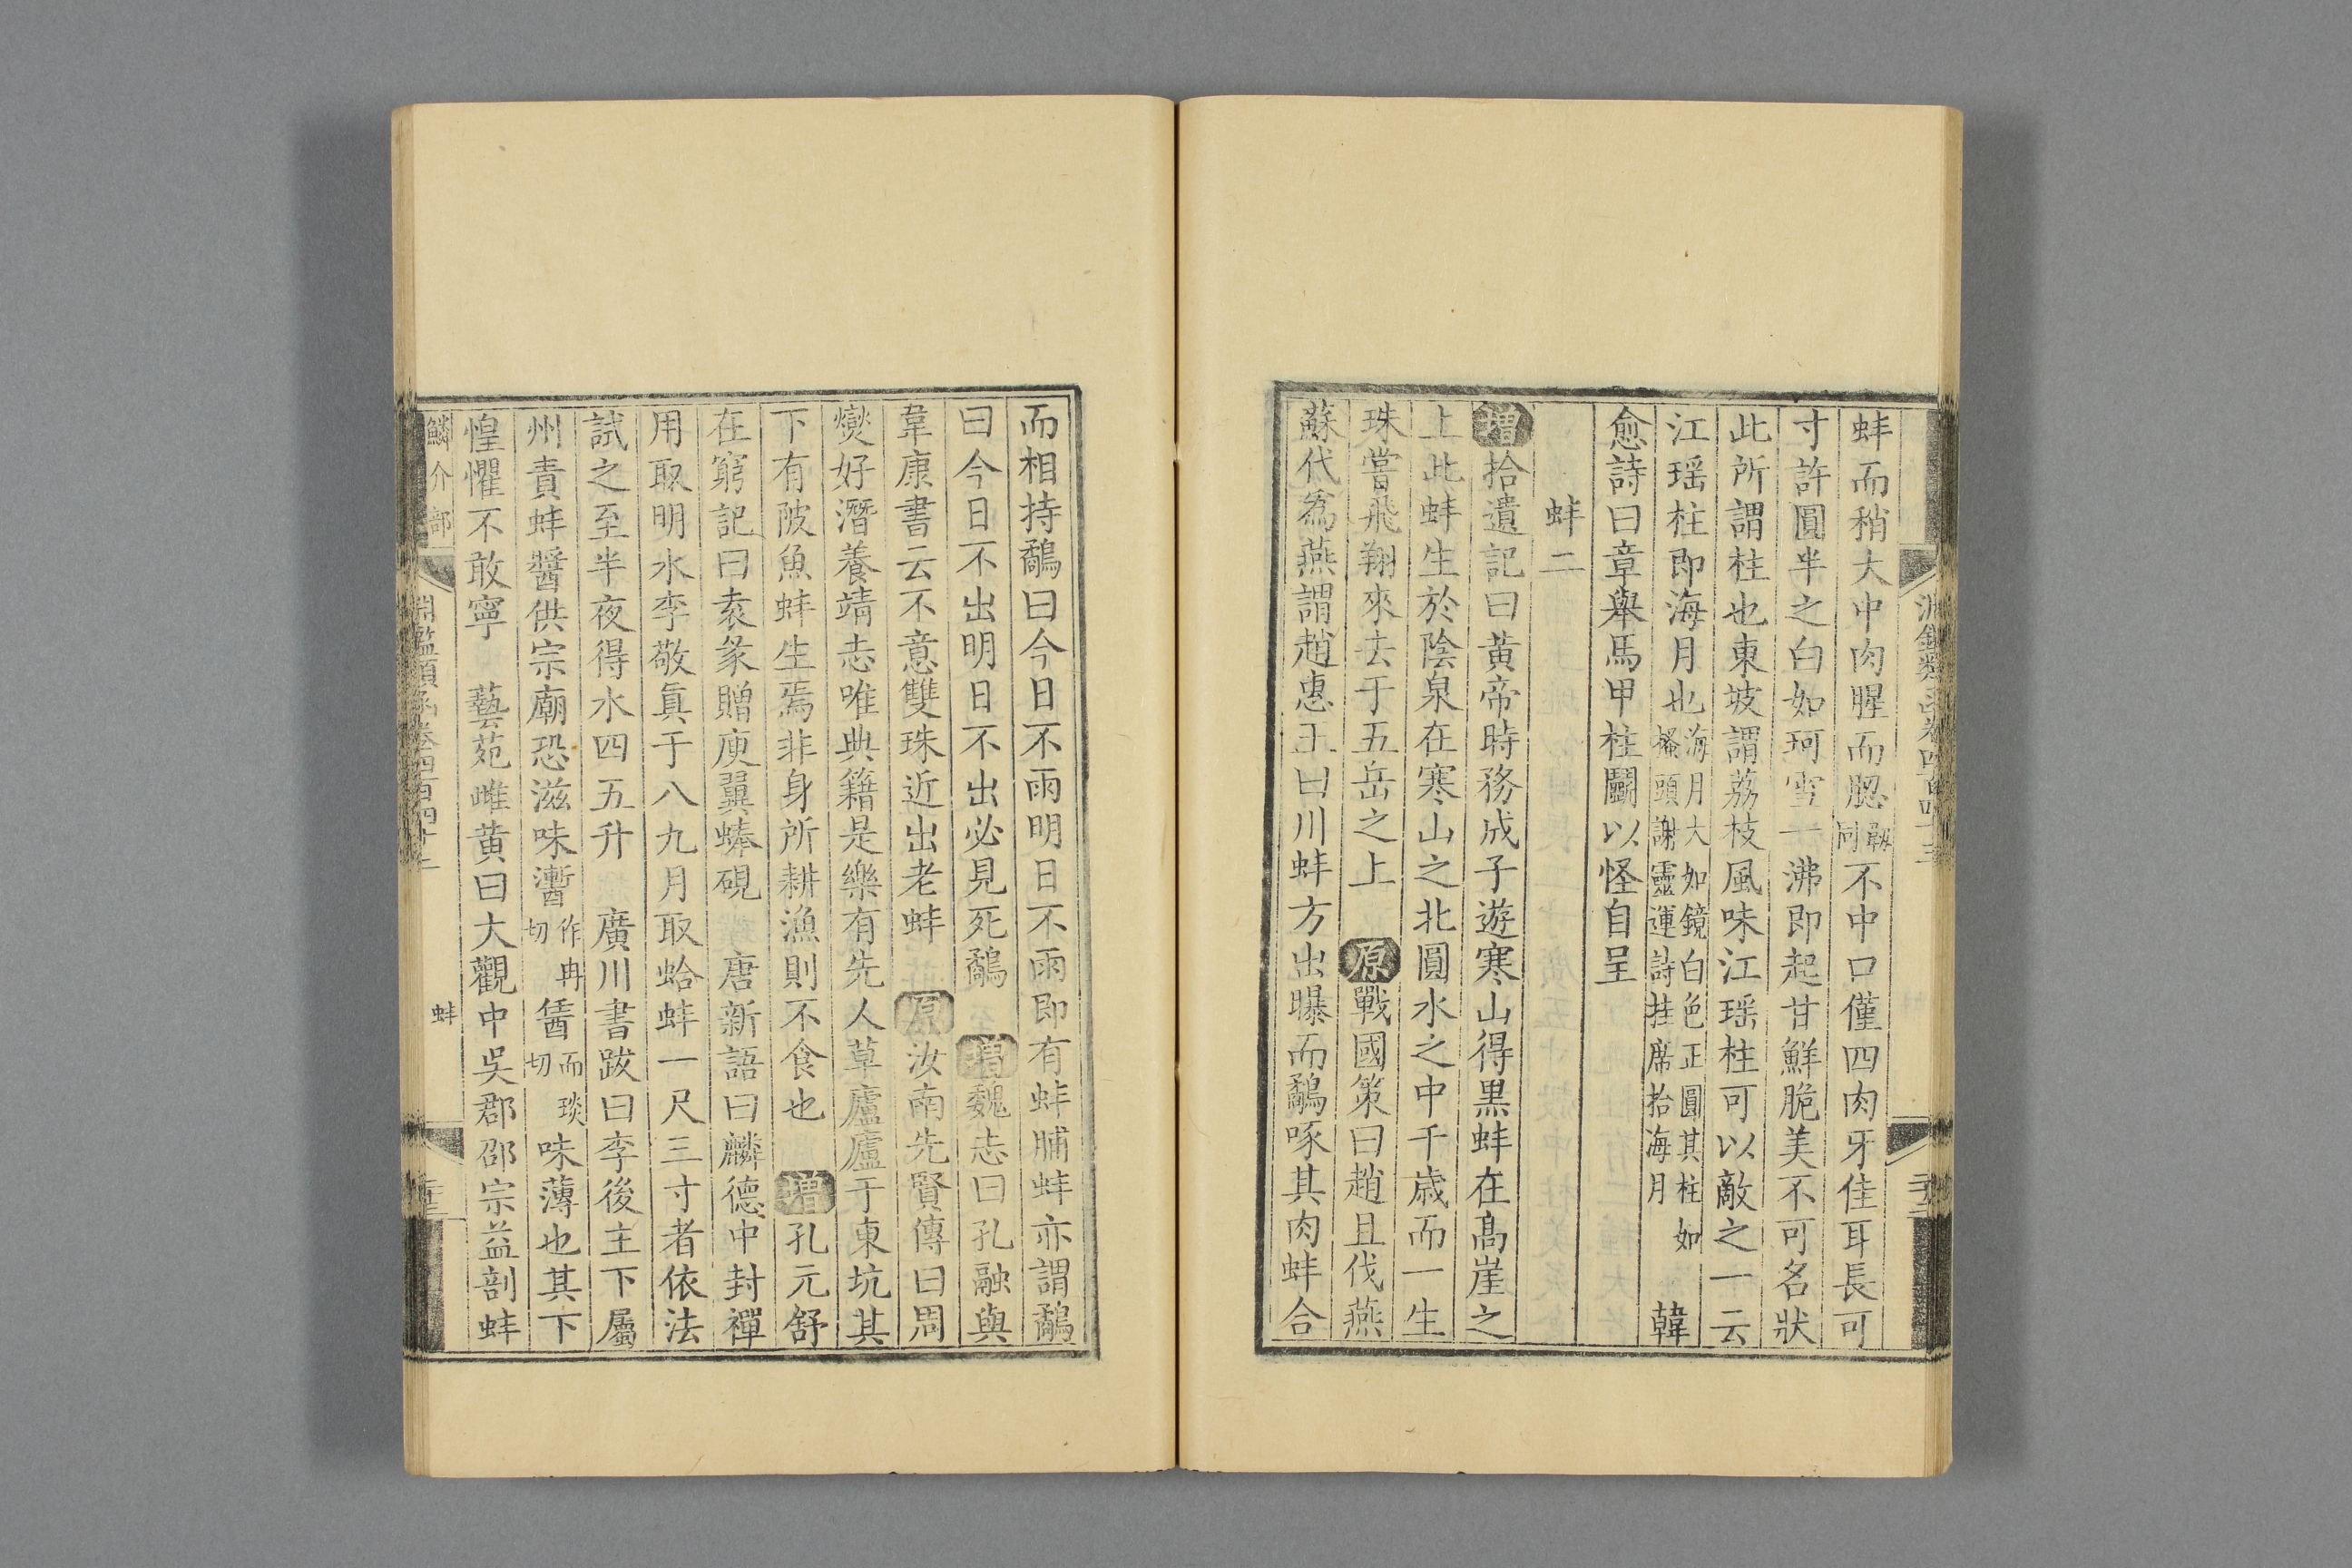 蚌而稍大中肉腥而䏰韌同不中口僅四肉牙佳耳長可
寸許圓半之白如珂雪一沸即起甘鮮脆美不可名狀
此所謂柱也東坡謂荔枝風味江瑶柱可以敵之一云
江瑶柱即海月也海月大如鏡白色正圓其柱如搔頭謝靈運詩挂席拾海月韓
愈詩曰章舉馬甲柱鬬以怪自呈
蚌二
增拾遺記曰黄帝時務成子遊寒山得黑蚌在髙崖之
上此蚌生於陰泉在寒山之北圓水之中千歲而一生
珠嘗飛翔來去于五岳之上 原戰國策曰趙且伐燕
蘇代爲燕謂趙惠王曰川蚌方出曝而鷸啄其肉蚌合
而相持鷸曰今日不雨明日不雨即有蚌脯蚌亦謂鷸
曰今日不出明日不出必見死鷸 增魏志曰孔融與
韋康書云不意雙珠近出老蚌 原汝南先賢傳曰周
燮好潛養靖志唯典籍是樂有先人草廬廬于東坑其
下有陂魚蚌生焉非身所耕漁則不食也 增孔元舒
在窮記曰袁彖贈庾翼蜯硯 唐新語曰麟德中封禪
用取明水李敬眞于八九月取蛤蚌一尺三寸者依法
試之至半夜得水四五升 廣川書跋曰李後主下屬
州責蚌醬供宗廟恐滋味𨣳作冉切𨡎而琰切味薄也其下
惶懼不敢寧 藝苑雌黄曰大觀中吳郡邵宗益剖蚌
鱗介部
淵鑑類函卷四百四十三
蚌